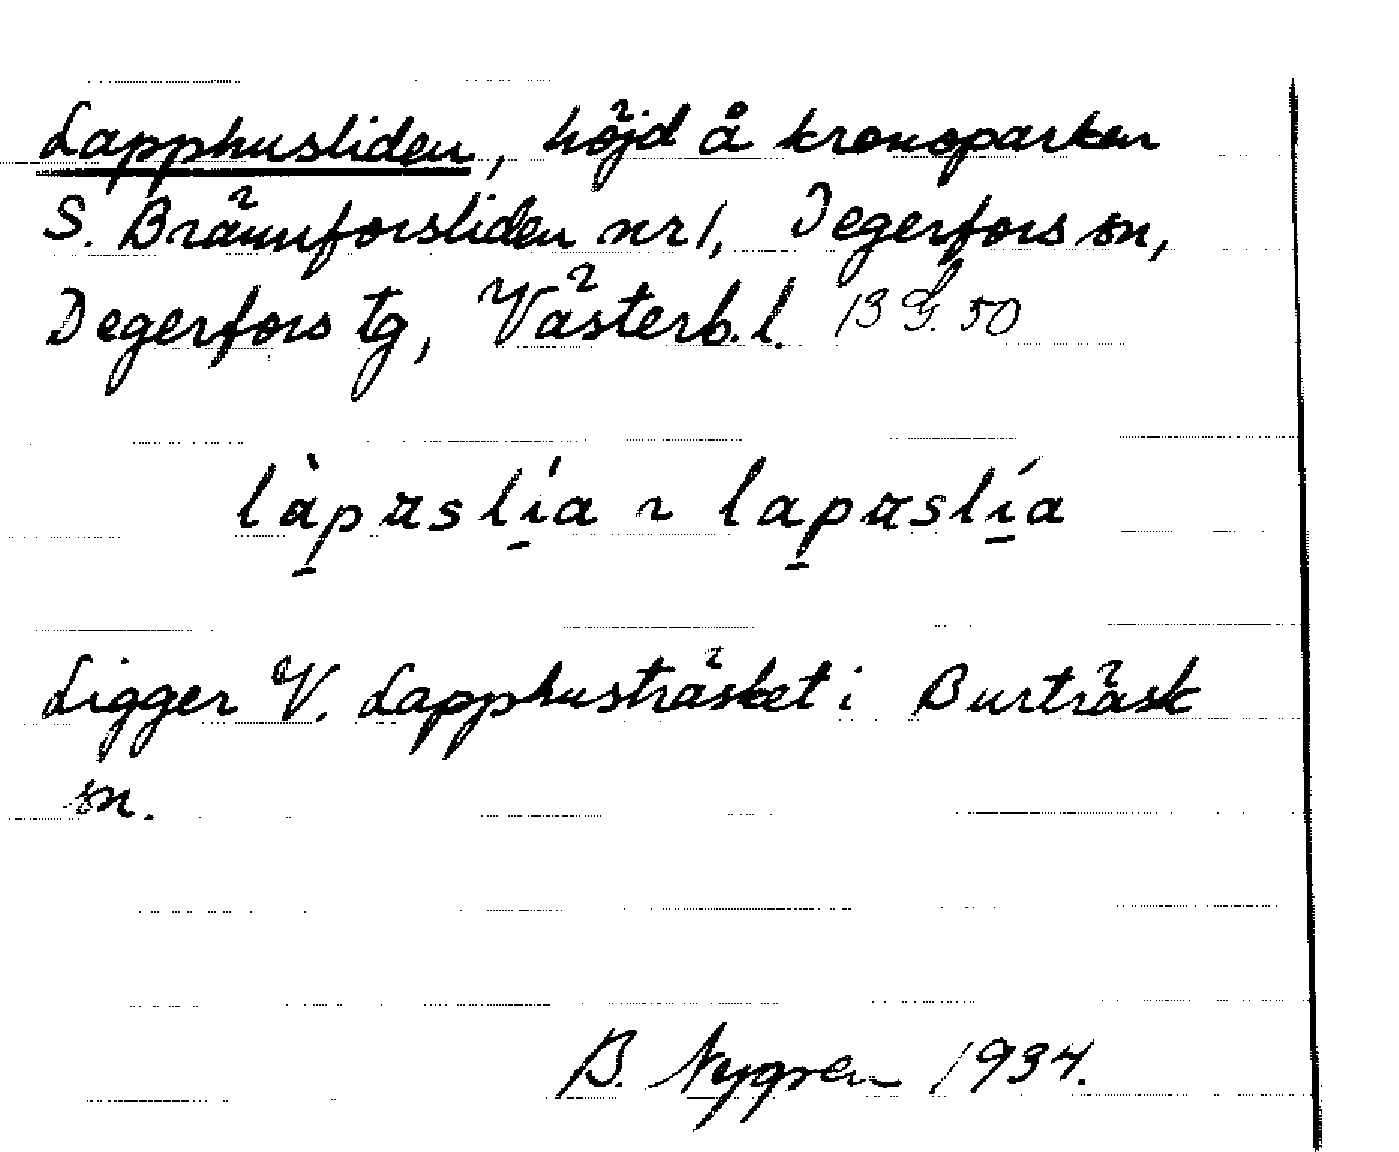 Lapphusliden, höjd å kronoparken
S. Brännforsliden nr 1, Degerfors sn,
Degerfors tg, Västerb. l. 13 G. 50
làpʉslía ~ lapʉslía
Ligger V. Lapphusträsket i Burträsk
sn.
B. Nygren 1934.